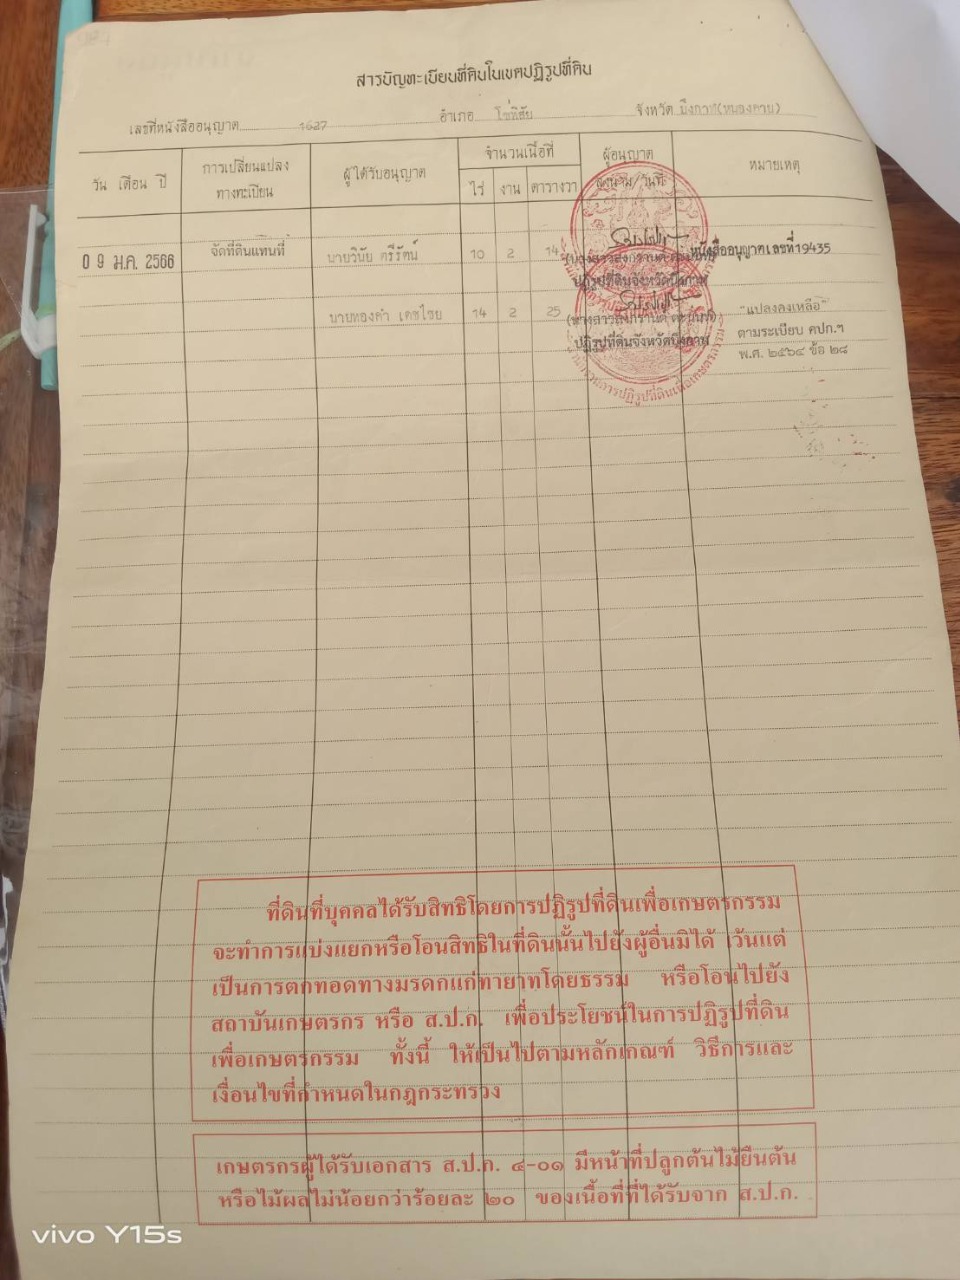 สารบัญทะเบียนที่ดินในเขตปฏิรูปที่ดิน
เลขที่หนังสืออนุญาต 1627 อำเภอ โซ่พิสัย จังหวัด บึงกาฬ(หนองคาย)
วัน เดือน ปี การเปลี่ยนแปลงทางทะเบียน ผู้ได้รับอนุญาต จำนวนเนื้อที่ ไร่ งาน ตารางวา ผู้อนุญาต ลงนาม/วันที่ หมายเหตุ
0 9 ม.ค. 2566 จัดที่ดินแทนที่ นายวินัย ศรีรัตน์ 10 2 14 หนังสืออนุญาตเลขที่ 19435
ปฏิรูปที่ดินจังหวัดบึงกาฬ
นายทองคำ เดชไชย 14 2 25 "แปลงคงเหลือ"
ปฏิรูปที่ดินจังหวัดบึงกาฬ ตามระเบียบ คปก.ฯ
พ.ศ. ๒๕๖๔ ข้อ ๒๘
ที่ดินที่บุคคลได้รับสิทธิโดยการปฏิรูปที่ดินเพื่อเกษตรกรรม
จะทำการแบ่งแยกหรือโอนสิทธิในที่ดินนั้นไปยังผู้อื่นมิได้ เว้นแต่
เป็นการตกทอดทางมรดกแก่ทายาทโดยธรรม หรือโอนไปยัง
สถาบันเกษตรกร หรือ ส.ป.ก. เพื่อประโยชน์ในการปฏิรูปที่ดิน
เพื่อเกษตรกรรม ทั้งนี้ ให้เป็นไปตามหลักเกณฑ์ วิธีการและ
เงื่อนไขที่กำหนดในกฎกระทรวง
เกษตรกรผู้ได้รับเอกสาร ส.ป.ก. ๔-๐๑ มีหน้าที่ปลูกต้นไม้ยืนต้น
หรือไม้ผลไม่น้อยกว่าร้อยละ ๒๐ ของเนื้อที่ที่ได้รับจาก ส.ป.ก.
vivo Y15s